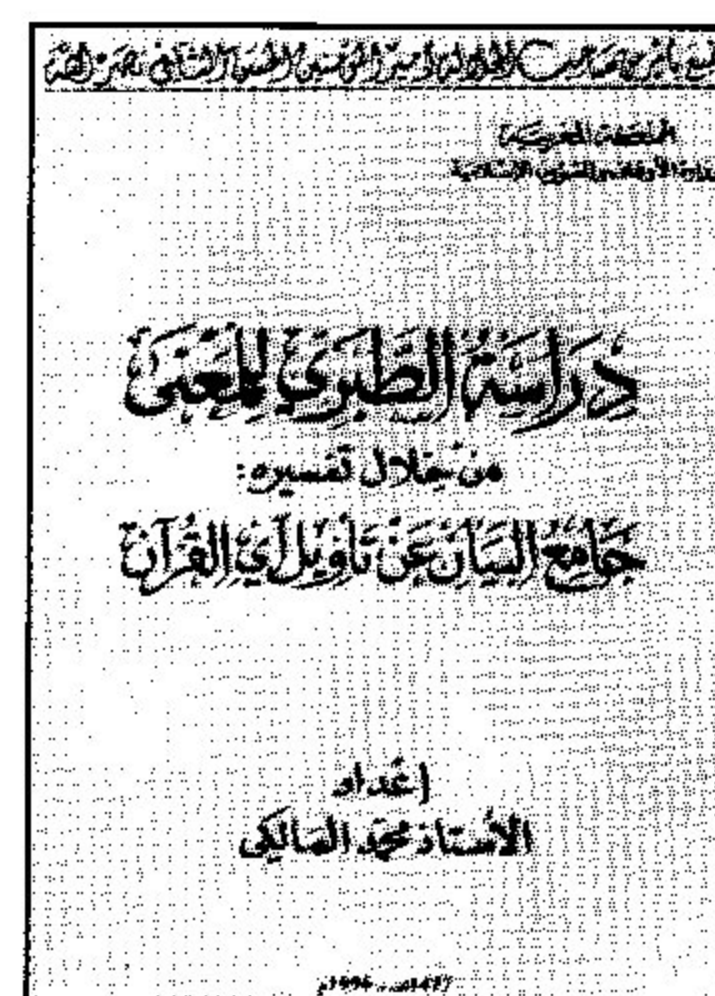 طبع بأمر من صاحب الجلالة أمير المؤمنين الحسن الثاني نصره الله
المملكة المغربية
وزارة الأوقاف والشؤون الإسلامية
دِرَاسَةُ الطَّبَرِيِّ لِلْمَعْنَى
من خلال تفسيره:
جَامِعُ البَيَانِ عَنْ تَأْوِيلِ آيِ القُرْآنِ
إعداد
الأستاذ محمد المالكي
1417هـ - 1996م